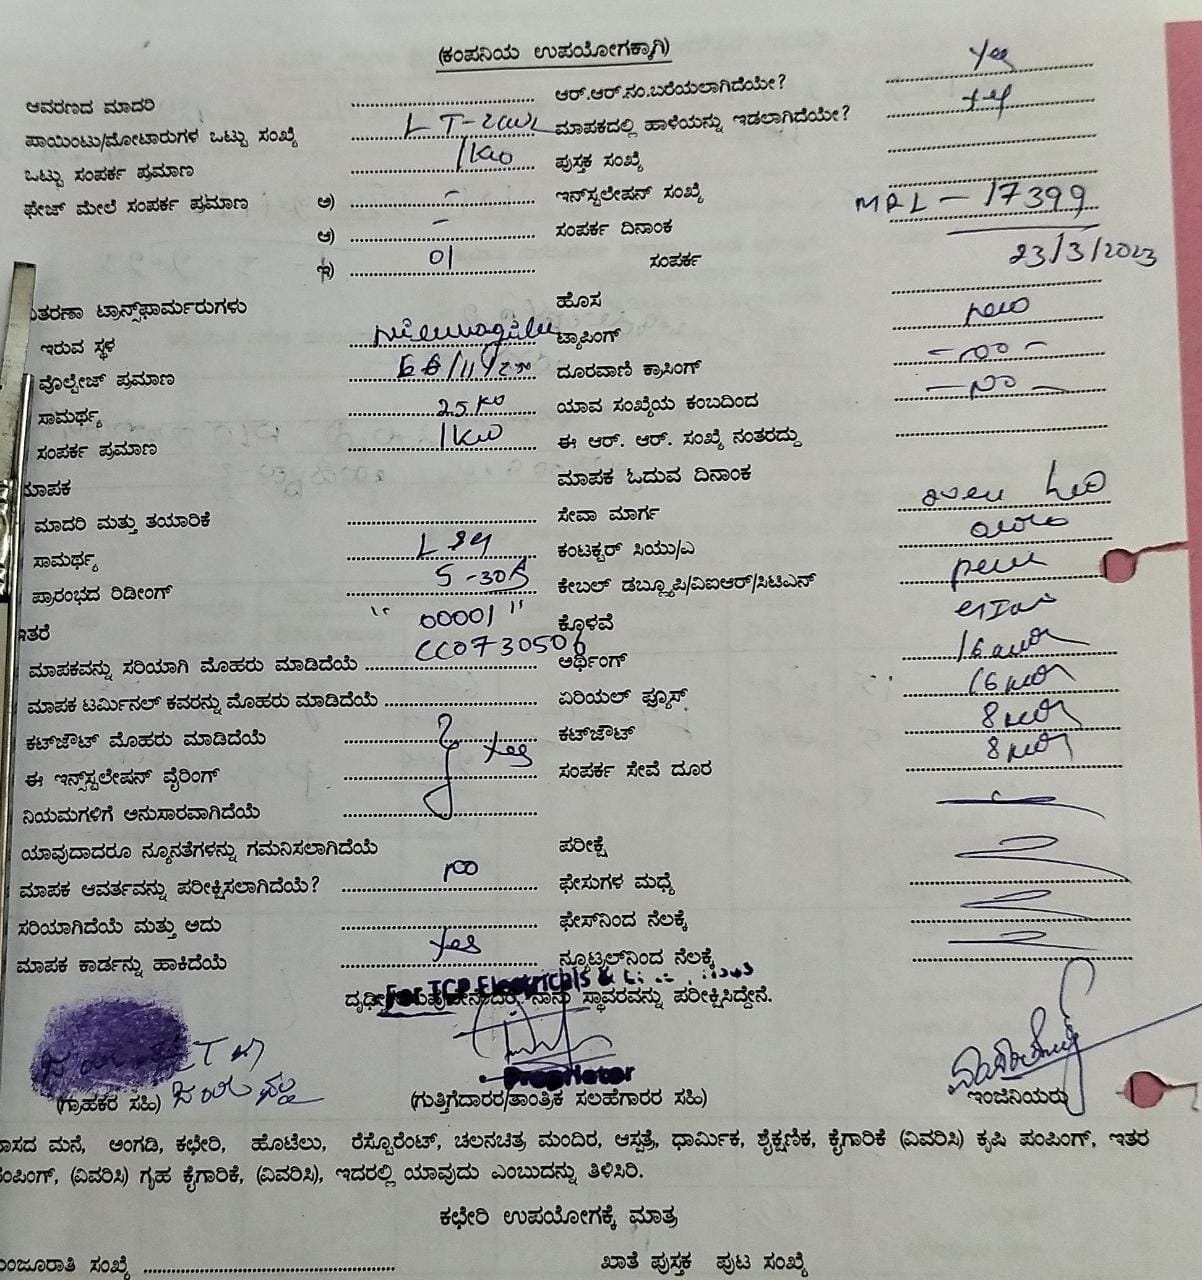 (ಕಂಪನಿಯ ಉಪಯೋಗಕ್ಕಾಗಿ)
ಆವರಣದ ಮಾದರಿ ಆರ್.ಆರ್.ನಂ.ಬರೆಯಲಾಗಿದೆಯೇ? Yes
ಪಾಯಿಂಟು/ಮೋಟಾರುಗಳ ಒಟ್ಟು ಸಂಖ್ಯೆ ಮಾಪಕದಲ್ಲಿ ಹಾಳೆಯನ್ನು ಇಡಲಾಗಿದೆಯೇ? Yes
ಒಟ್ಟು ಸಂಪರ್ಕ ಪ್ರಮಾಣ 1kw ಪುಸ್ತಕ ಸಂಖ್ಯೆ
ಫೇಜ್ ಮೇಲೆ ಸಂಪರ್ಕ ಪ್ರಮಾಣ ಅ) - ಇನ್‌ಸ್ಟಲೇಷನ್ ಸಂಖ್ಯೆ MRL - 17399
ಆ) - ಸಂಪರ್ಕ ದಿನಾಂಕ 23/3/2023
ಇ) 01 ಸಂಪರ್ಕ
ವಿತರಣಾ ಟ್ರಾನ್ಸ್‌ಫಾರ್ಮರುಗಳು ಹೊಸ new
ಇರುವ ಸ್ಥಳ ಟ್ಯಾಪಿಂಗ್ - no -
ವೋಲ್ಟೇಜ್ ಪ್ರಮಾಣ ದೂರವಾಣಿ ಕ್ರಾಸಿಂಗ್ - no -
ಸಾಮರ್ಥ್ಯ 25 ಯಾವ ಸಂಖ್ಯೆಯ ಕಂಬದಿಂದ
ಸಂಪರ್ಕ ಪ್ರಮಾಣ 1kw ಈ ಆರ್. ಆರ್. ಸಂಖ್ಯೆ ನಂತರದ್ದು
ಮಾಪಕ ಮಾಪಕ ಓದುವ ದಿನಾಂಕ
ಮಾದರಿ ಮತ್ತು ತಯಾರಿಕೆ ಸೇವಾ ಮಾರ್ಗ
ಸಾಮರ್ಥ್ಯ ಕಂಟಕ್ಟರ್ ಸಿಯು/ಎ
ಪ್ರಾರಂಭದ ರಿಡೀಂಗ್ 5-30A ಕೇಬಲ್ ಡಬ್ಲ್ಯೂಪಿ/ವಿಐಆರ್/ಸಿಟಿಎಸ್
ಇತರೆ "00001" ಕೊಳವೆ
ಮಾಪಕವನ್ನು ಸರಿಯಾಗಿ ಮೊಹರು ಮಾಡಿದೆಯೆ CC0730506 ಅರ್ಥಿಂಗ್
ಮಾಪಕ ಟರ್ಮಿನಲ್ ಕವರನ್ನು ಮೊಹರು ಮಾಡಿದೆಯೆ ಏರಿಯಲ್ ಫ್ಯೂಸ್
ಕಟ್‌ಔಟ್ ಮೊಹರು ಮಾಡಿದೆಯೆ Yes ಕಟ್‌ಔಟ್
ಈ ಇನ್‌ಸ್ಟಲೇಷನ್ ವೈರಿಂಗ್ ಸಂಪರ್ಕ ಸೇವೆ ದೂರ
ನಿಯಮಗಳಿಗೆ ಅನುಸಾರವಾಗಿದೆಯೆ
ಯಾವುದಾದರೂ ನ್ಯೂನತೆಗಳನ್ನು ಗಮನಿಸಲಾಗಿದೆಯೆ ಪರೀಕ್ಷೆ
ಮಾಪಕ ಆವರ್ತವನ್ನು ಪರೀಕ್ಷಿಸಲಾಗಿದೆಯೆ? no ಫೇಸುಗಳ ಮಧ್ಯೆ
ಸರಿಯಾಗಿದೆಯೆ ಮತ್ತು ಅದು ಫೇಸ್‌ನಿಂದ ನೆಲಕ್ಕೆ
ಮಾಪಕ ಕಾರ್ಡನ್ನು ಹಾಕಿದೆಯೆ Yes ನ್ಯೂಟ್ರಲ್‌ನಿಂದ ನೆಲಕ್ಕೆ
For TCP Electricals &
ನಾನು ಸ್ಥಾವರವನ್ನು ಪರೀಕ್ಷಿಸಿದ್ದೇನೆ.
Proprietor
(ಗ್ರಾಹಕರ ಸಹಿ) (ಗುತ್ತಿಗೆದಾರರ/ತಾಂತ್ರಿಕ ಸಲಹೆಗಾರರ ಸಹಿ) ಇಂಜಿನಿಯರು
ವಾಸದ ಮನೆ, ಅಂಗಡಿ, ಕಛೇರಿ, ಹೊಟೆಲು, ರೆಸ್ಟೊರೆಂಟ್, ಚಲನಚಿತ್ರ ಮಂದಿರ, ಆಸ್ಪತ್ರೆ, ಧಾರ್ಮಿಕ, ಶೈಕ್ಷಣಿಕ, ಕೈಗಾರಿಕೆ (ವಿವರಿಸಿ) ಕೃಷಿ ಪಂಪಿಂಗ್, ಇತರ
ಪಂಪಿಂಗ್, (ವಿವರಿಸಿ) ಗೃಹ ಕೈಗಾರಿಕೆ, (ವಿವರಿಸಿ), ಇದರಲ್ಲಿ ಯಾವುದು ಎಂಬುದನ್ನು ತಿಳಿಸಿರಿ.
ಕಛೇರಿ ಉಪಯೋಗಕ್ಕೆ ಮಾತ್ರ
ಮಂಜೂರಾತಿ ಸಂಖ್ಯೆ ಖಾತೆ ಪುಸ್ತಕ ಪುಟ ಸಂಖ್ಯೆ